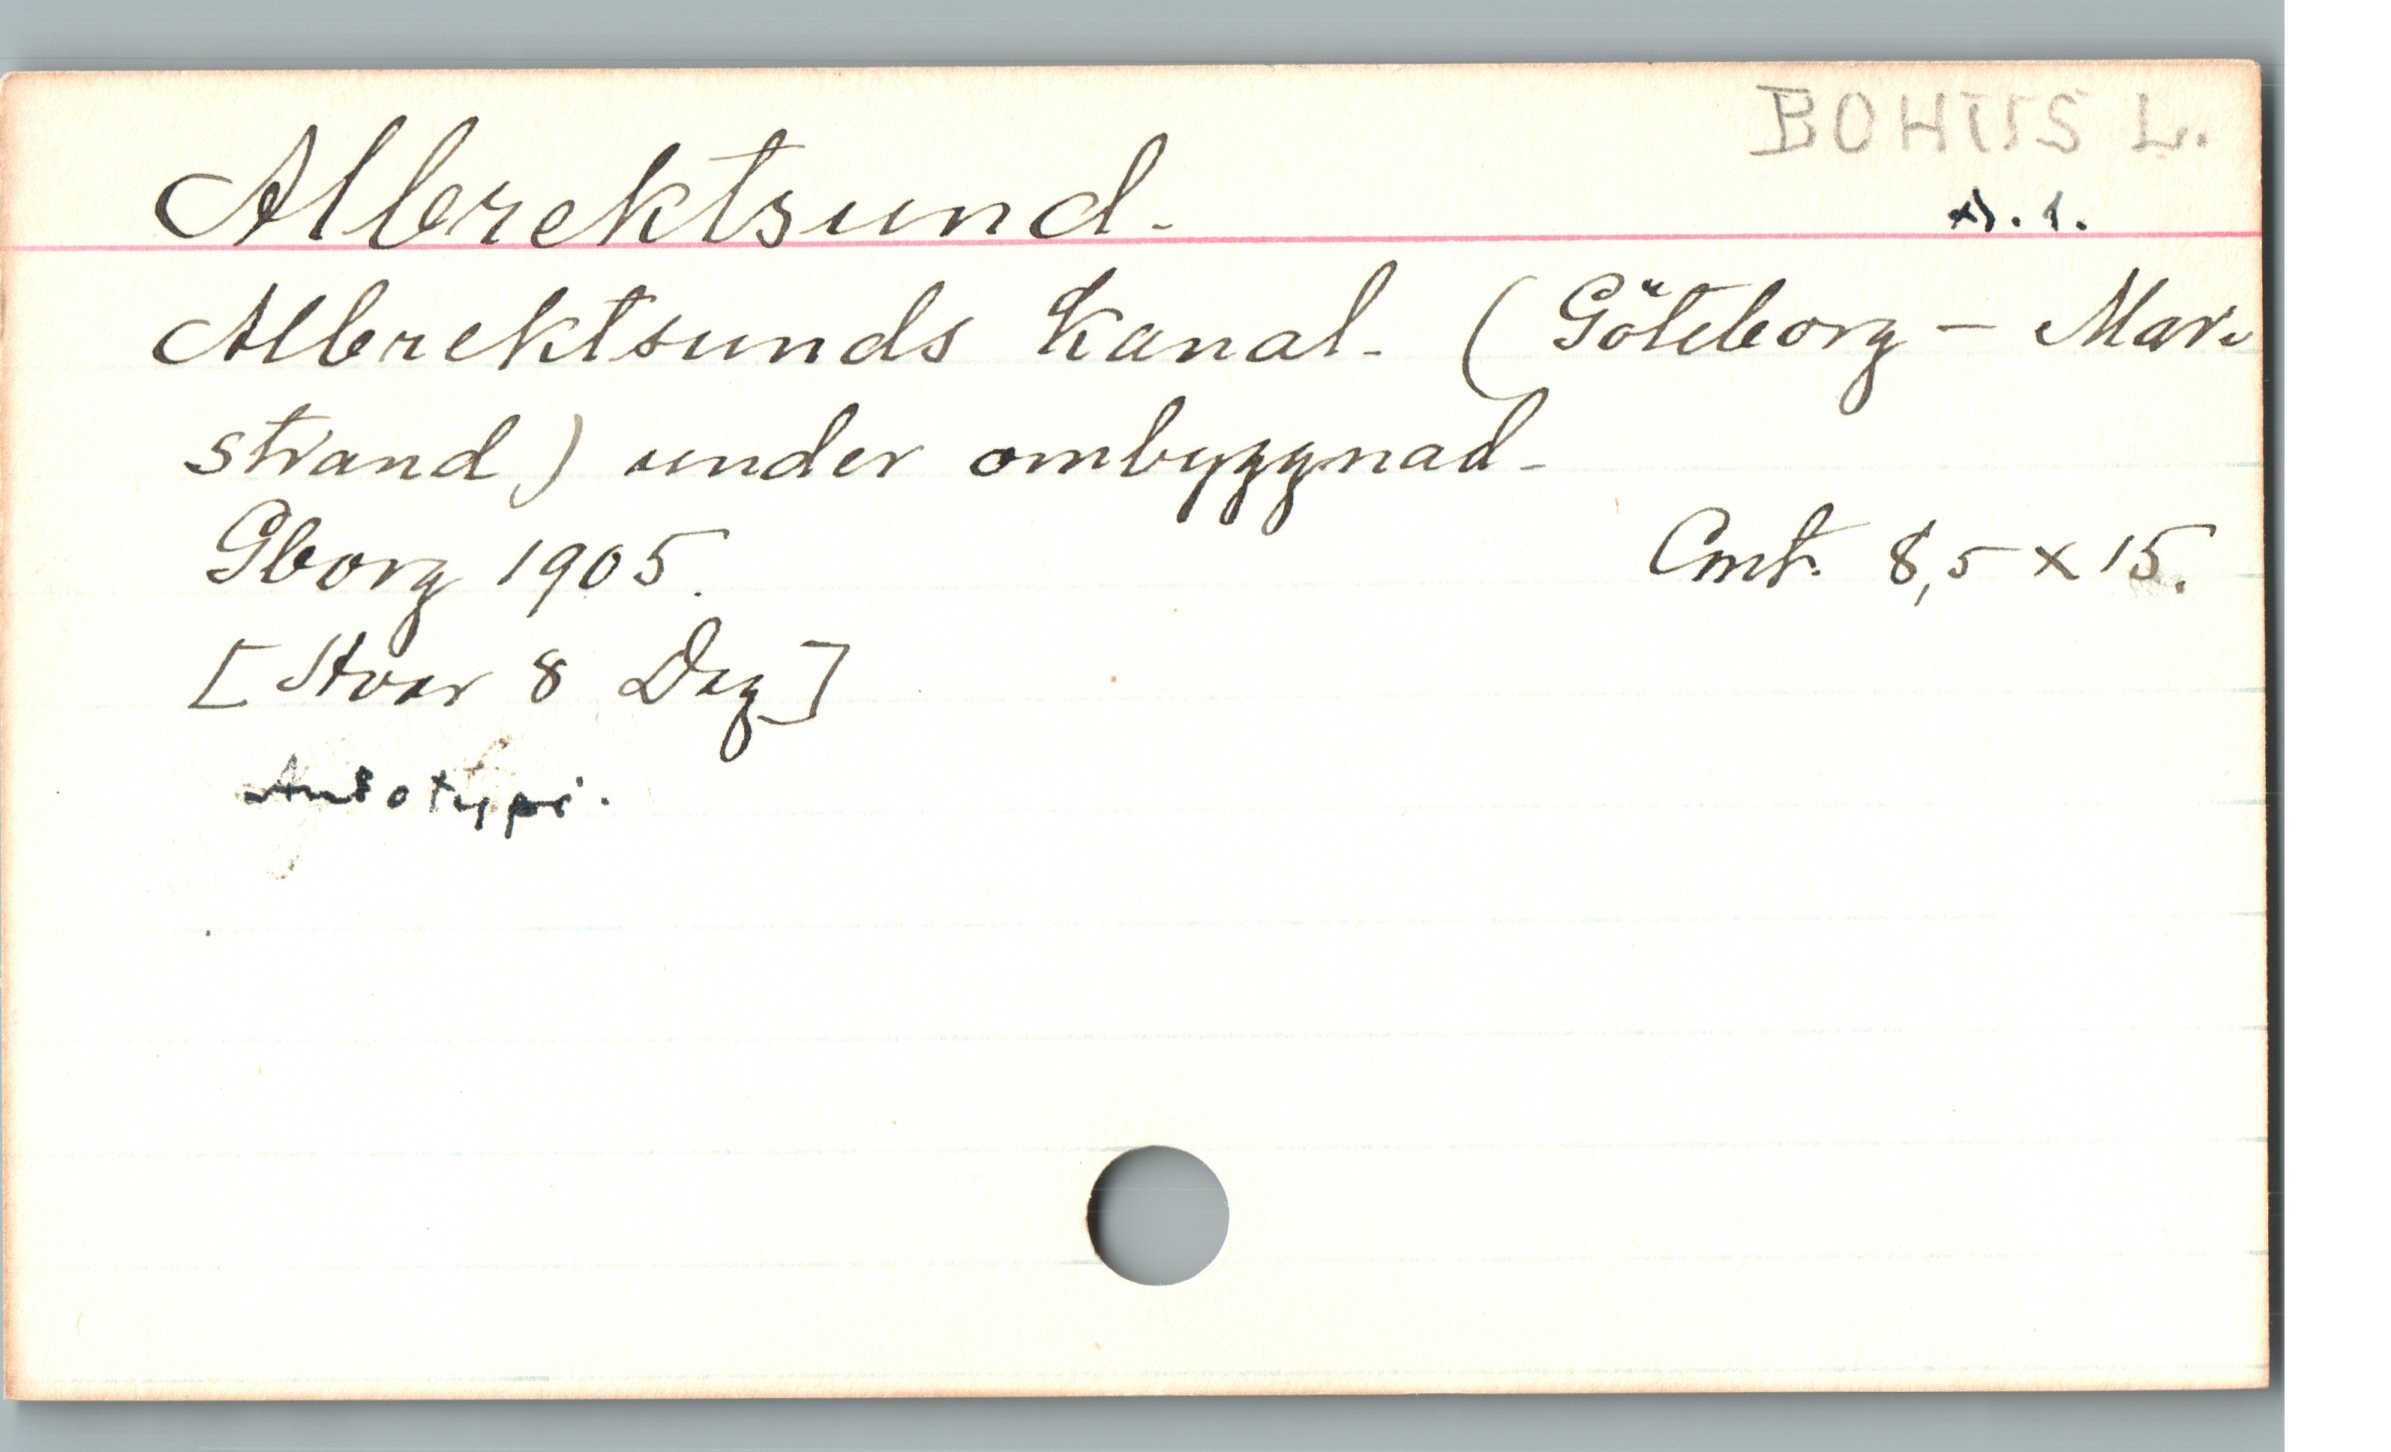 BOHUS L.
Albrektsund.
Albrektsunds Kanal. (Göteborg – Mar-
strand) under ombyggnad.
Gborg 1905.
Cmt. 8,5 x 15.
[Hvar 8 Dag]
Autotypi.